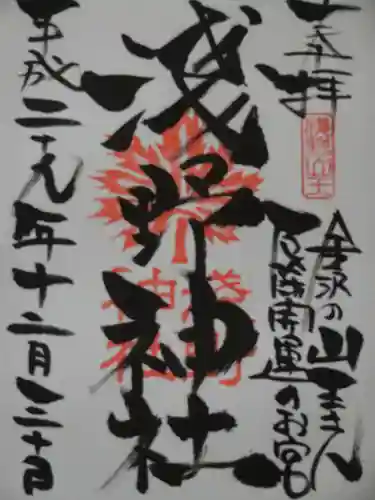 奉拝
金沢の山王さん
厄除開運のお宮
淺野神社
平成二十九年十二月三十日